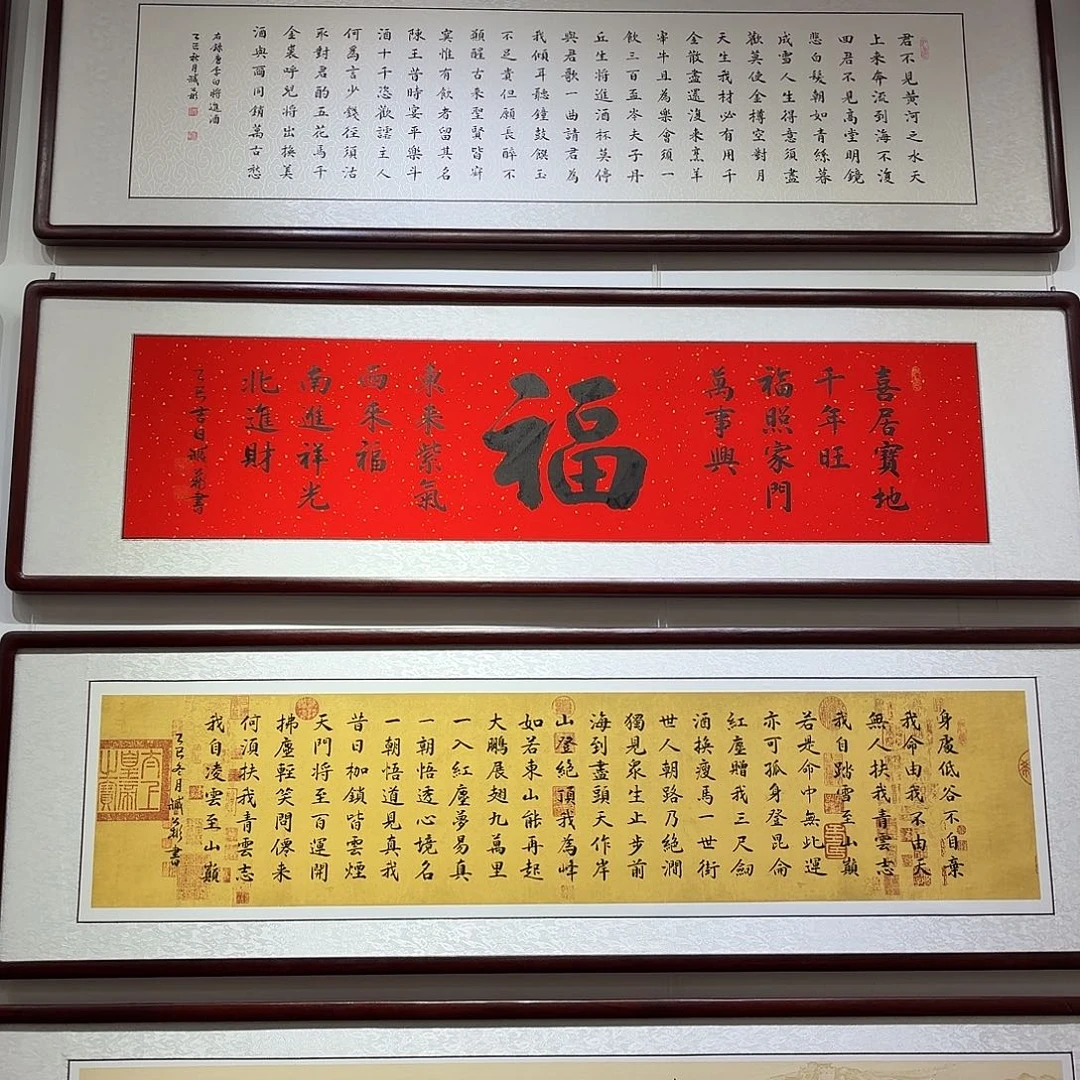 君不見黃河之水天
上來奔流到海不復
回君不見高堂明鏡
悲白髮朝如青絲暮
成雪人生得意須盡
歡莫使金樽空對月
天生我材必有用千
金散盡還復來烹羊
宰牛且為樂會須一
飲三百盃岑夫子丹
丘生將進酒杯莫停
與君歌一曲請君為
我傾耳聽鐘鼓饌玉
不足貴但願長醉不
願醒古來聖賢皆寂
寞惟有飲者留其名
陳王昔時宴平樂斗
酒十千恣歡謔主人
何為言少錢徑須沽
取對君酌五花馬千
金裘呼兒將出換美
酒與爾同銷萬古愁
右錄唐李白將進酒
乙巳秋月誠
喜居寶地
千年旺
福照家門
萬事興
福
東來紫氣
西來福
南進祥光
北進財
乙巳吉日誠書
身處低谷不自棄
我命由我不由天
無人扶我青雲志
我自踏雪至山巔
若是命中無此運
亦可孤身登昆侖
紅塵贈我三尺劍
酒換瘦馬一世街
世人朝路乃絕澗
獨見眾生止步前
海到盡頭天作岸
山登絕頂我為峰
如若東山能再起
大鵬展翅九萬里
一入紅塵夢易真
一朝悟透心境名
一朝悟道見真我
昔日枷鎖皆雲煙
天門將至百運開
拂塵輕笑問僊來
何須扶我青雲志
我自凌雲至山巔
乙巳冬月誠書